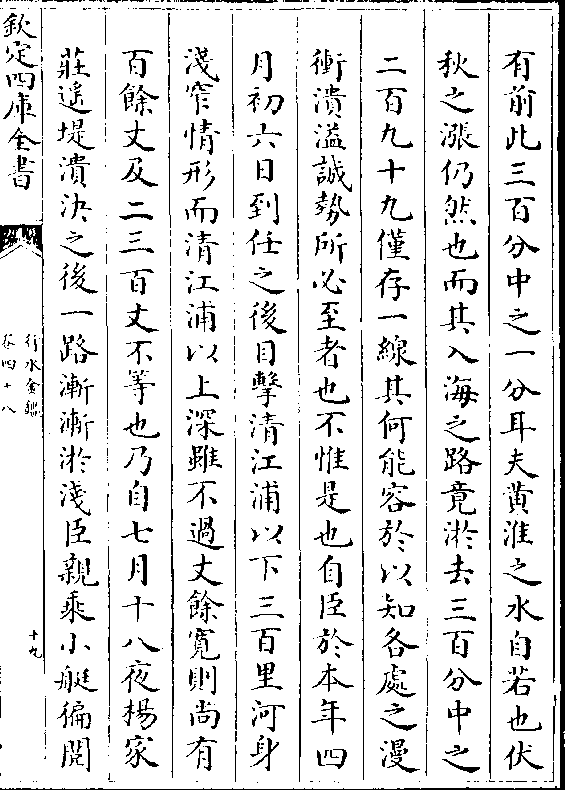 有前此三百分中之一分耳夫黄淮之水自若也伏
秋之漲仍然也而其入海之路竟淤去三百分中之
二百九十九僅存一線其何能容於以知各處之漫
衝潰溢誠勢所必至者也不惟是也自臣於本年四
月初六日到任之後目擊清江浦以下三百里河身
淺窄情形而清江浦以上深雖不過丈餘寛則尚有
百餘丈及二三百丈不等也乃自七月十八夜楊家
莊遥堤潰決之後一路漸漸淤淺臣親乘小艇徧閱
欽定四庫全書
行水金鑑
卷四十八
十九